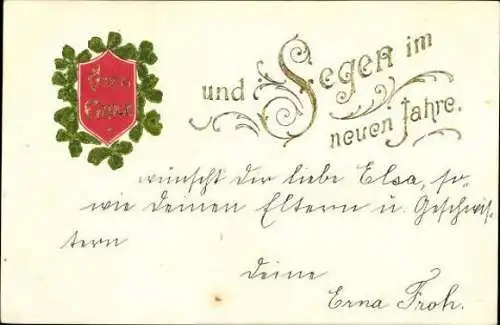 Viel
Glück
und Segen im
neuen Jahre.
wünscht dir liebe Elsa, so-
wie deinen Eltern u. Geschwis-
tern
deine
Erna Froh.